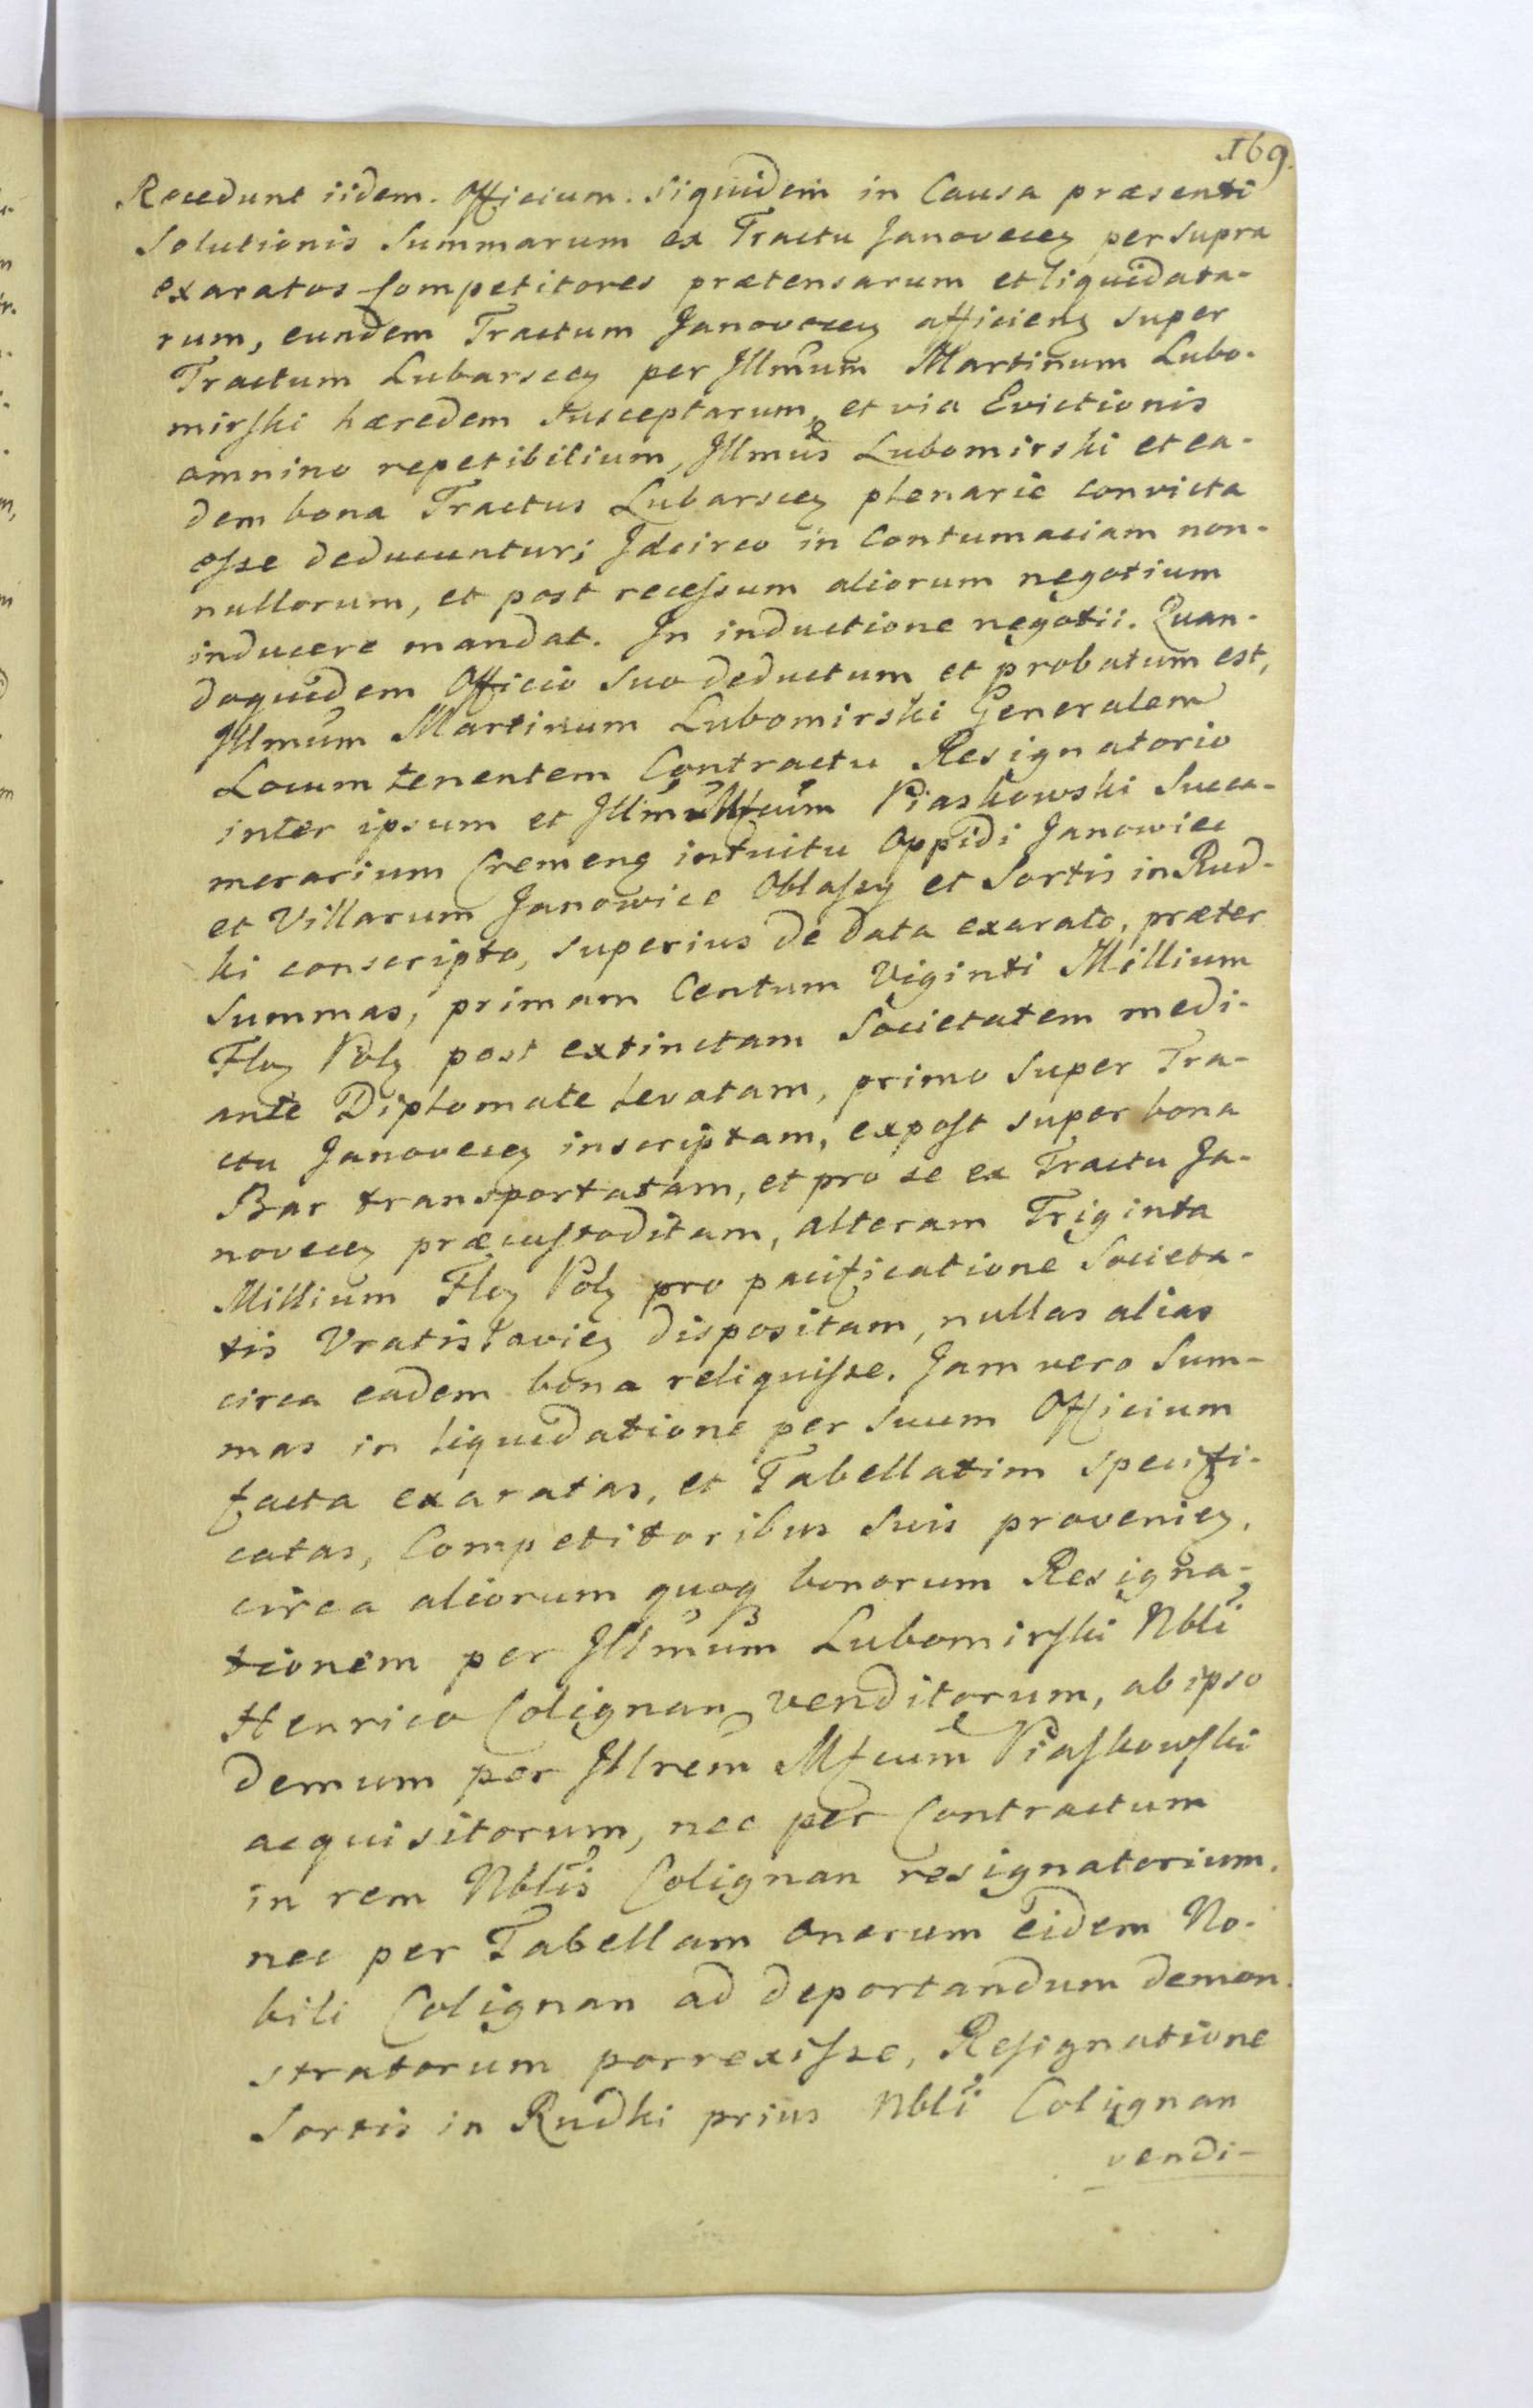 169.
Recedunt iidem. Officium. Siquidem in Causa præsenti
Solutionis Summarum ex Tractu Janovecen persupra
exaratos Competitores prætensarum et liquidata-
rum, eundem Tractum Janovecen afficien super
Tractum Lubarscen per Jllmum Martinum Lubo-
mirski hæredem susceptarum, et via Evictionis
omnino repetibilium, Jllmus Lubomirski et ea-
dem bona Tractus Lubarscen plenarie convicta
esse deducuntur; Jdcirco in Contumaciam non-
nullorum, et post recessum aliorum negotium
inducere mandat. Jn inductione negotii. Quan-
doquidem Officio Suo deductum et probatum est,
Jllmum Martinum Lubomirski Generalem
Locum tenentem Contractu Resignatorio
inter ipsum et Jllm Mfcum Piaskowski Succa-
merarium Cremenen intuitu Oppidi Janowiec
et Villarum Janowice Oblassy et Sortis in Rud-
ki conscripto, superius de data exarato, præter
Summas, primam Centum Viginti Millium
Flor Pol post extinctam Societatem medi-
ante Diplomate levatam, primo Super Tra-
ctu Janovecen inscriptam, expost super bona
Bar transportatam, et pro se ex Tractu Ja-
novecen præcustoditam, alteram Triginta
Millium Flor Pol pro pacificatione Societa-
tis Vratislavien dispositam, nullas alias
circa eadem bona reliquisse. Jam vero Sum-
mas in liquidatione per Suum Officium
facta exaratas, et Tabellatim specifi-
catas, Competitoribus Suis provenien,
circa aliorum quoq bonorum Resigna-
tionem per Jllmum Lubomirski Nbli
Henrico Colignan venditorum, ab ipso
demum per Jllrem Mfcum Piaskowski
acquisitorum, nec per Contractum
in rem Nblis Colignan resignatorium,
nec per Tabellam onerum eidem No-
bili Colignan ad deportandum demon-
stratorum porrexisse, Resignatione
Sortis in Rudki prius Nbli Colignan
vendi-